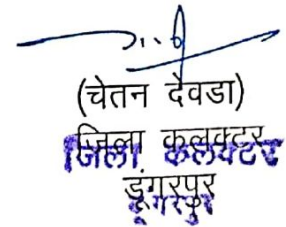 (चेतन देवडा)
जिला कलक्टर
जिला कलक्टर
डूंगरपुर
डूंगरपुर